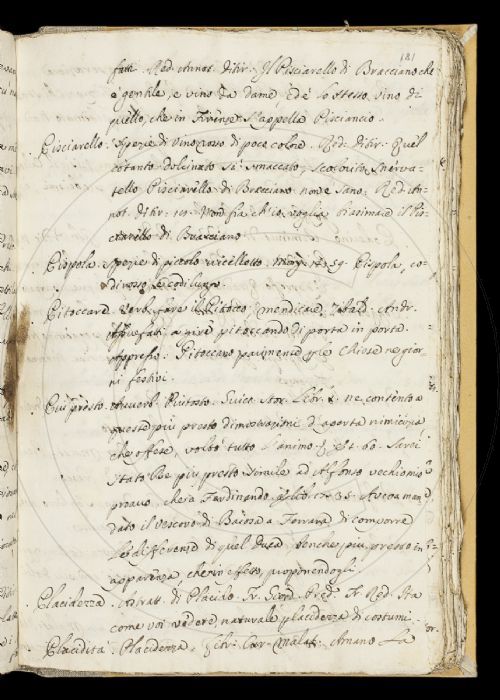 181
fatti. Red. Annot. Ditir. Il Pisciarello di Bracciano che
è gentile, e vino da dame, ed è lo stesso vino di
quello, che in Firenze s'appella Pisciancio.
Pisciarello. Spezie di vino rosso di poco colore. Red. Ditir. Quel
cotanto sdolcinato Sì smaccato, scolorito, snerva-
tello Pisciarello di Bracciano non è sano. Red. An-
not. Ditir. 19. Non sia ch'io voglia biasimare il Pis-
ciarello di Bracciano.
Pispola. Spezie di piccolo uccelletto. Morg. 14. 59. Pispola, co-
dirosso, e codilungo.
Pitoccare. Verb. fare il Pitocco, mendicare.
a vive pitoccando di porta in porta.
Appresso. Pitoccavo le Chiese ne gior-
ni festivi.
Più presto. Avverb. Piuttosto. Guicc. Stor. Libr. 1. ne contento a
questa più presto dimostrazioni d'aperta nimicizia
che offese, voltò tutto l'animo. 60. Sarei
stato Re più presto simile ad Alfonso vecchio mio
proavo, che a Ferdinando. 35. Aveva man
dato il vescovo di a Ferrara di comporre
le differenze di quel Duca, benche più presto in
apparenza, che in effetto, proponendogli.
Placidezza. Astratt. di Placido. Fr. Giord. Pred. R. Red. Ita
come voi vedere naturale placidezza di costumi.
Placidità. Placidezza. Libr. Cur. Malat. Amano la